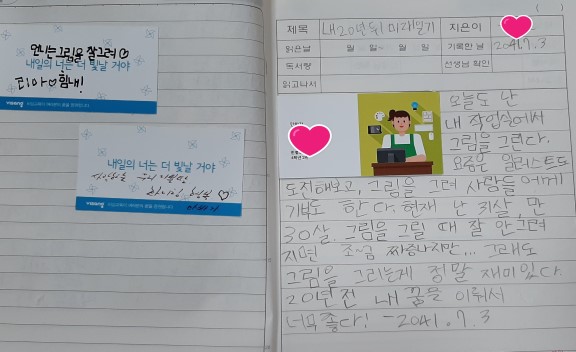 언니는그림을 잘그려♡
내일의 너는 더 빛날 거야
리아♡힘내!
내일의 너는 더 빛날 거야
제목 내20년뒤 미래일기 지은이
읽은날 월 일~ 월 일 기록한 날 2041.7.3
독서량 선생님 확인
읽고나서
오늘도 난
내 작업실에서
그림을 그린다.
요즘은 일러스트도
도전해보고, 그림을 그려 사람들에게
기부도 한다. 현재 난 31살, 만
30살 그림을 그릴 때 잘 안그려
지면 조~금 짜증나지만... 그래도
그림을 그리는게 정말 재미있다.
20년전 내 꿈을 이뤄서
너무좋다! -2041.7.3